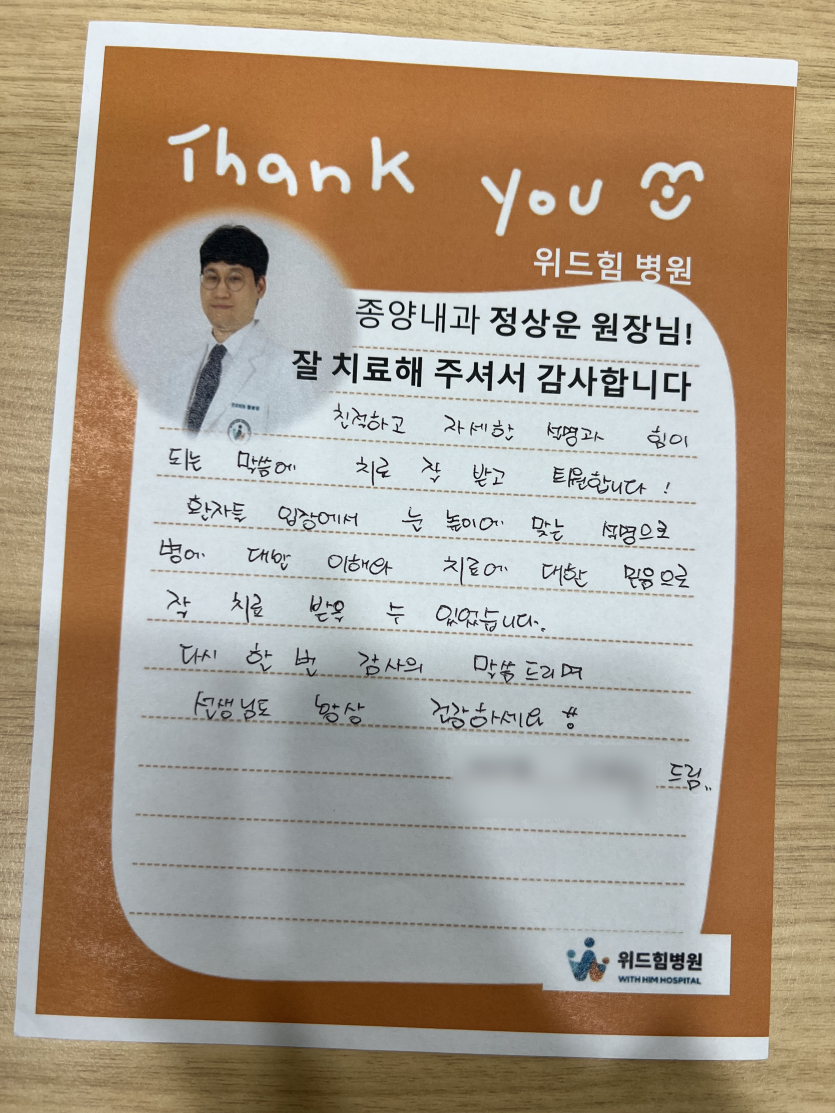 Thank you
위드힘 병원
종양내과 정상운 원장님!
잘 치료해 주셔서 감사합니다
친절하고 자세한 설명과 힘이
되는 말씀에 치료 잘 받고 퇴원합니다!
환자들 입장에서 눈높이에 맞는 설명으로
병에 대한 이해와 치료에 대한 믿음으로
잘 치료 받을 수 있었습니다.
다시 한 번 감사의 말씀드리며
선생님도 항상 건강하세요
드림..
위드힘병원
WITH HIM HOSPITAL